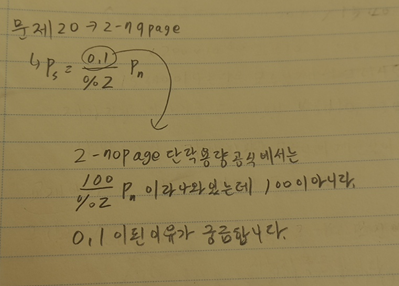 문제 20 → 2-79page
↳ Ps = 0.1 / %Z Pn
2-70page 단락용량 공식에서는
100 / %Z Pn 이라 나와있는데 100이 아니라.
0.1 이 된 이유가 궁금합니다.